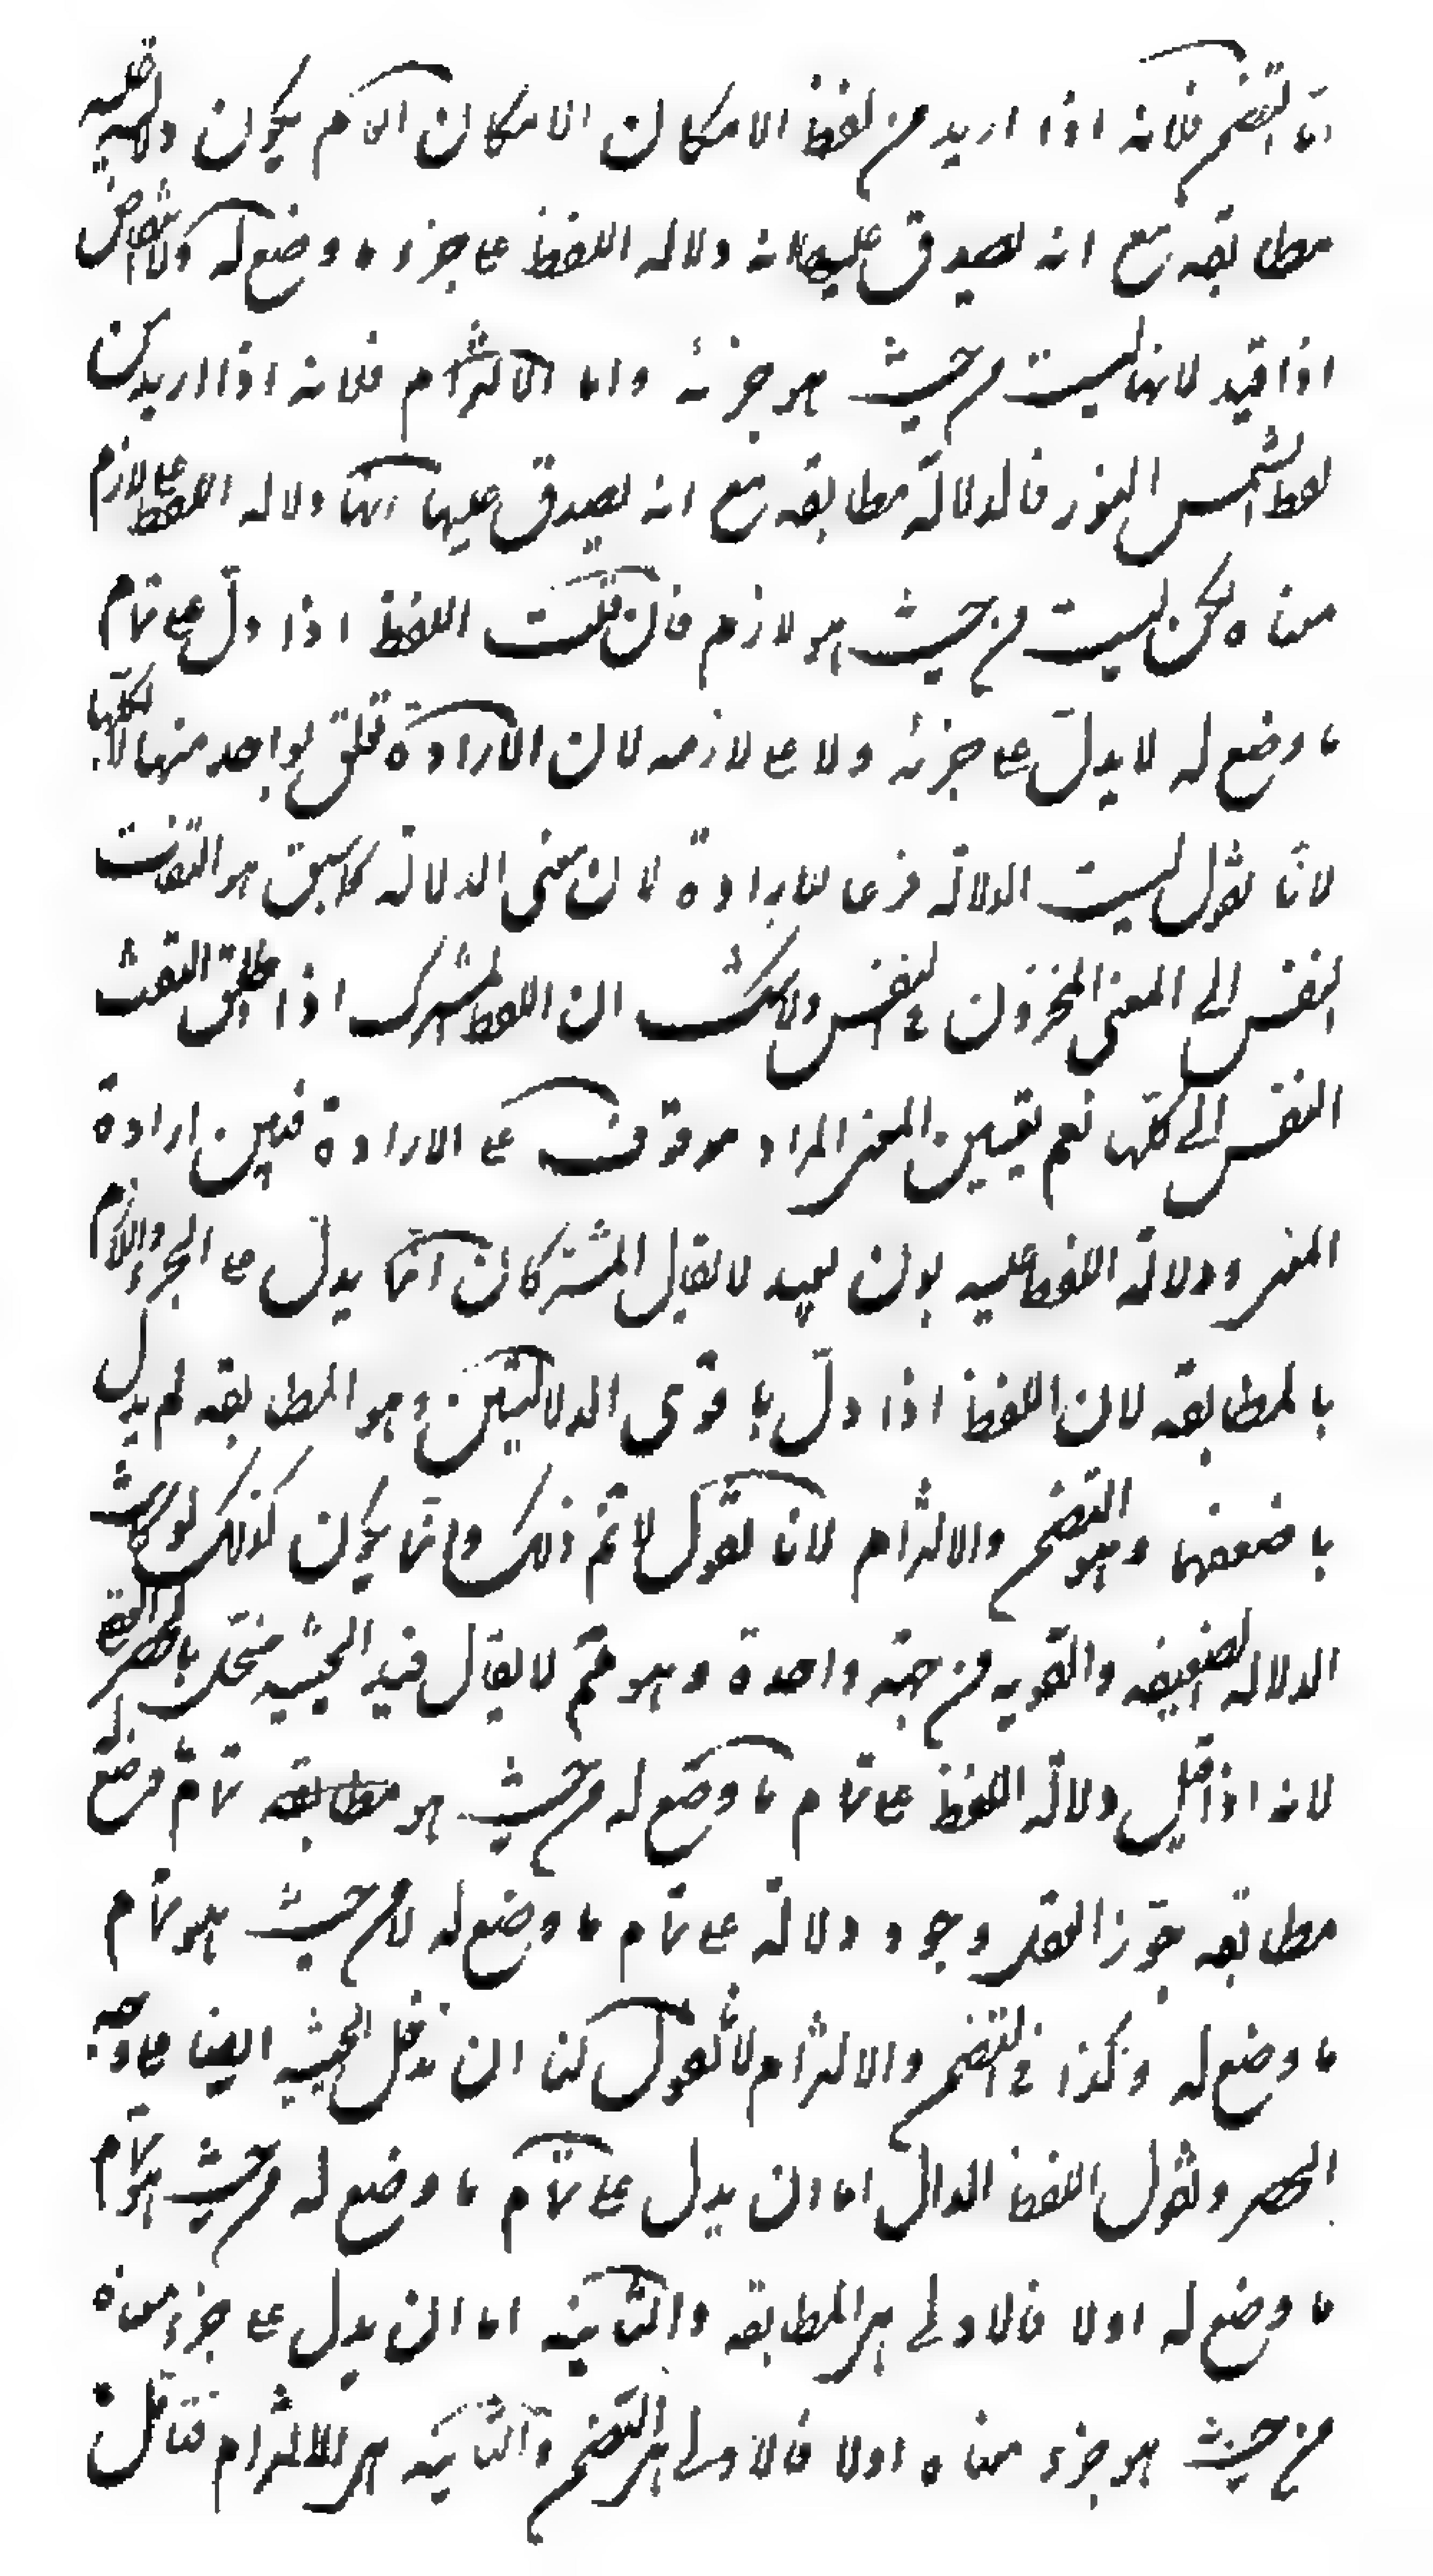 اما التضمن فلانه اذا اريد من لفظ الامكان الامكان العام يكون دلالته عليه
مطابقه مع انه يصدق عليها انه دلاله اللفظ على جزء ما وضع له ولا انتقاض
اذا قيد لانها ليست من حيث هو جزئه واما الالتزام فلانه اذا اريد من
لفظ الشمس النور فالدلالة مطابقه مع انه يصدق عليها انها دلاله اللفظ على لازم
معناه لكن ليست من حيث هو لازم فان قلت اللفظ اذا دل على تمام
ما وضع له لا يدل على جزئه ولا على لازمه لان الارادة تتعلق بواحد منها لا بكلها
لانا نقول ليست الدلالة فرعا للارادة لان معنى الدلالة كما سبق هو التفات
النفس الى المعنى المخزون في النفس ولا شك ان اللفظ المشترك اذا اطلق التفت
النفس الى كلها نعم تعيين المعنى المراد موقوف على الارادة فبين ارادة
المعنى ودلالة اللفظ عليه بون بعيد لا يقال المشترك انما يدل على الجزء واللازم
بالمطابقه لان اللفظ اذا دل باقوى الدلالتين وهو المطابقه لم يدل
باضعفهما وهو التضمن والالتزام لانا نقول لا ثم ذلك وانما يكون كذلك لو كانت
الدلاله الضعيفه والقويه من جهة واحدة وهو ثم لا يقال قيد الحيثيه مخل بالحصر العقلى
لانه اذا قيل دلالة اللفظ على تمام ما وضع له من حيث هو تمام ما وضع له
مطابقه جوز العقل وجود دلالة على تمام ما وضع له لا من حيث هو تمام
ما وضع له وكذا في التضمن والالتزام لانا نقول لنا ان ندخل الحيثيه ايضا على وجه
الحصر ونقول اللفظ الدال اما ان يدل على تمام ما وضع له من حيث هو تمام
ما وضع له اولا فالاولى هى المطابقه والثانيه اما ان يدل على جزء معناه
من حيث هو جزء معناه اولا فالاولى هى التضمن والثانيه هى الالتزام فتامل